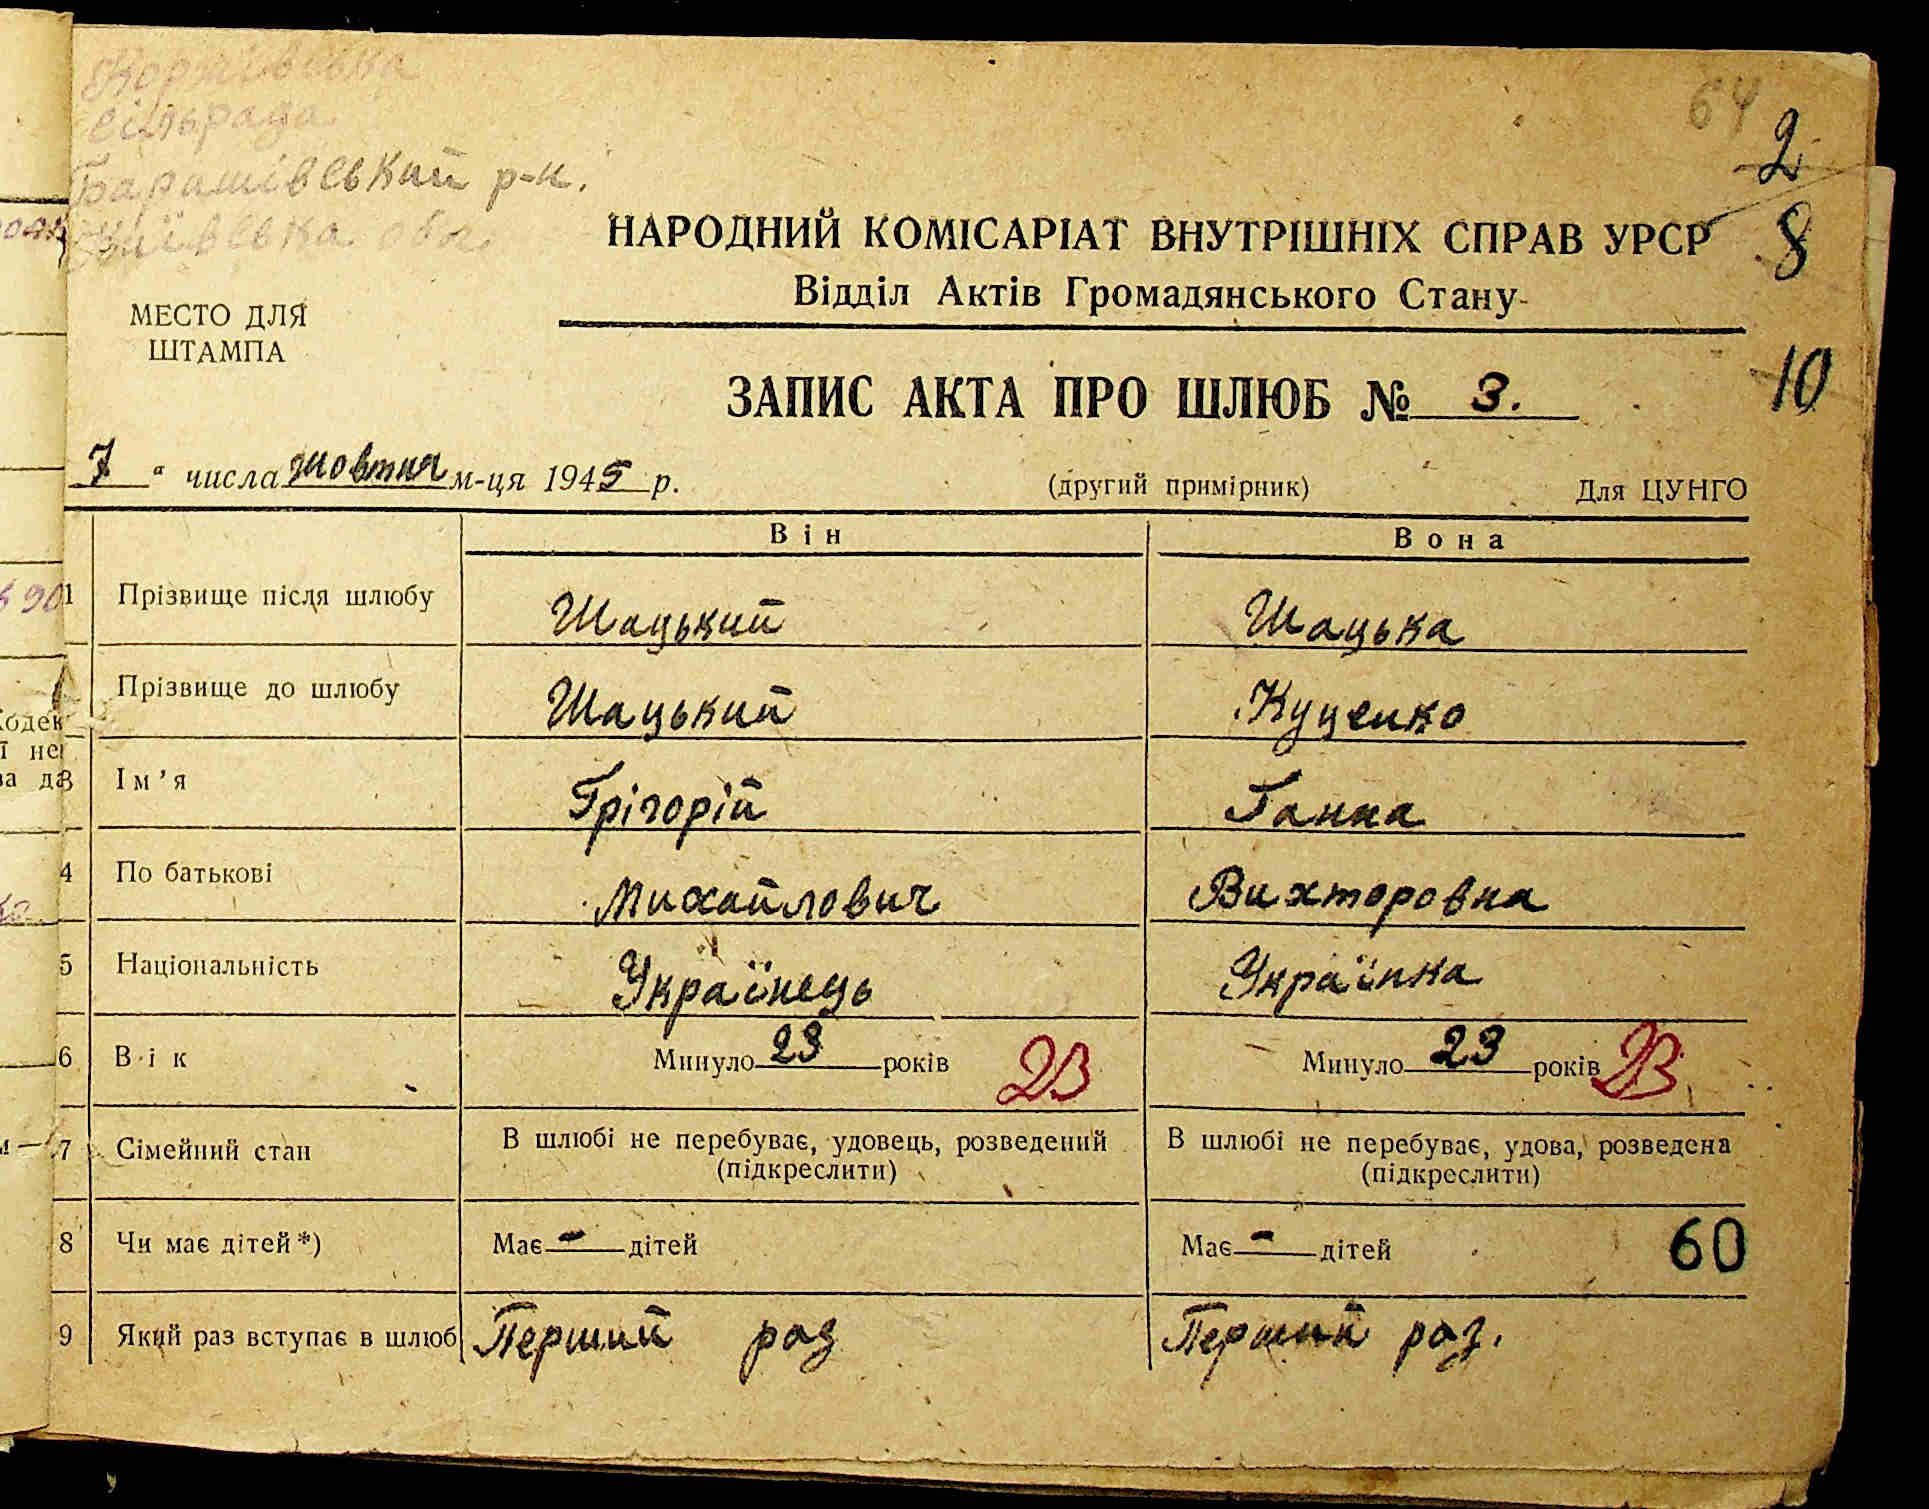 сільрада
Барашівський р-н.
64
2
8
10
НАРОДНИЙ КОМІСАРІАТ ВНУТРІШНІХ СПРАВ УРСР
Відділ Актів Громадянського Стану
МЕСТО ДЛЯ
ШТАМПА
ЗАПИС АКТА ПРО ШЛЮБ № 3.
7 " числа жовтня м-ця 1945 р.
(другий примірник) Для ЦУНГО
Він Вона
1 Прізвище після шлюбу Шацький Шацька
Прізвище до шлюбу Шацький Куценко
3 Ім'я Грігорій Ганна
4 По батькові Михайлович Вихторовна
5 Національність Українець Українка
6 Вік Минуло 23 років 23 Минуло 23 років 23
7 Сімейний стан В шлюбі не перебуває, удовець, розведений В шлюбі не перебуває, удова, розведена
(підкреслити) (підкреслити)
8 Чи має дітей*) Має - дітей Має - дітей 60
9 Який раз вступає в шлюб Перший раз Перший раз.